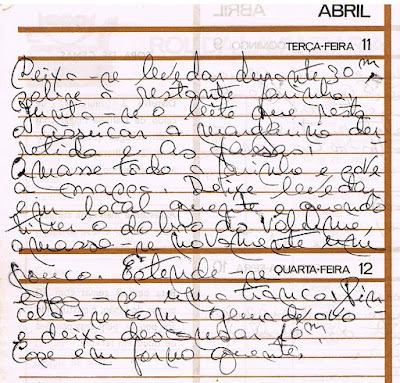 ABRIL
TERÇA-FEIRA 11
Deixa-se levedar durante 30m
sobre o restante farinha,
Junta-se o leite que resta
o açucar a margarina der-
retida e as passas.
Amasse toda a farinha e
a massa. Deixe levedar
em local quente e quando
tiver o dobro do volume,
amassa-se novamente um
pouco. Estende-se e
QUARTA-FEIRA 12
faz-se uma trança. Pin-
cela-se com gema de ovo
e deixa descansar 10m.
Coze em forno quente.